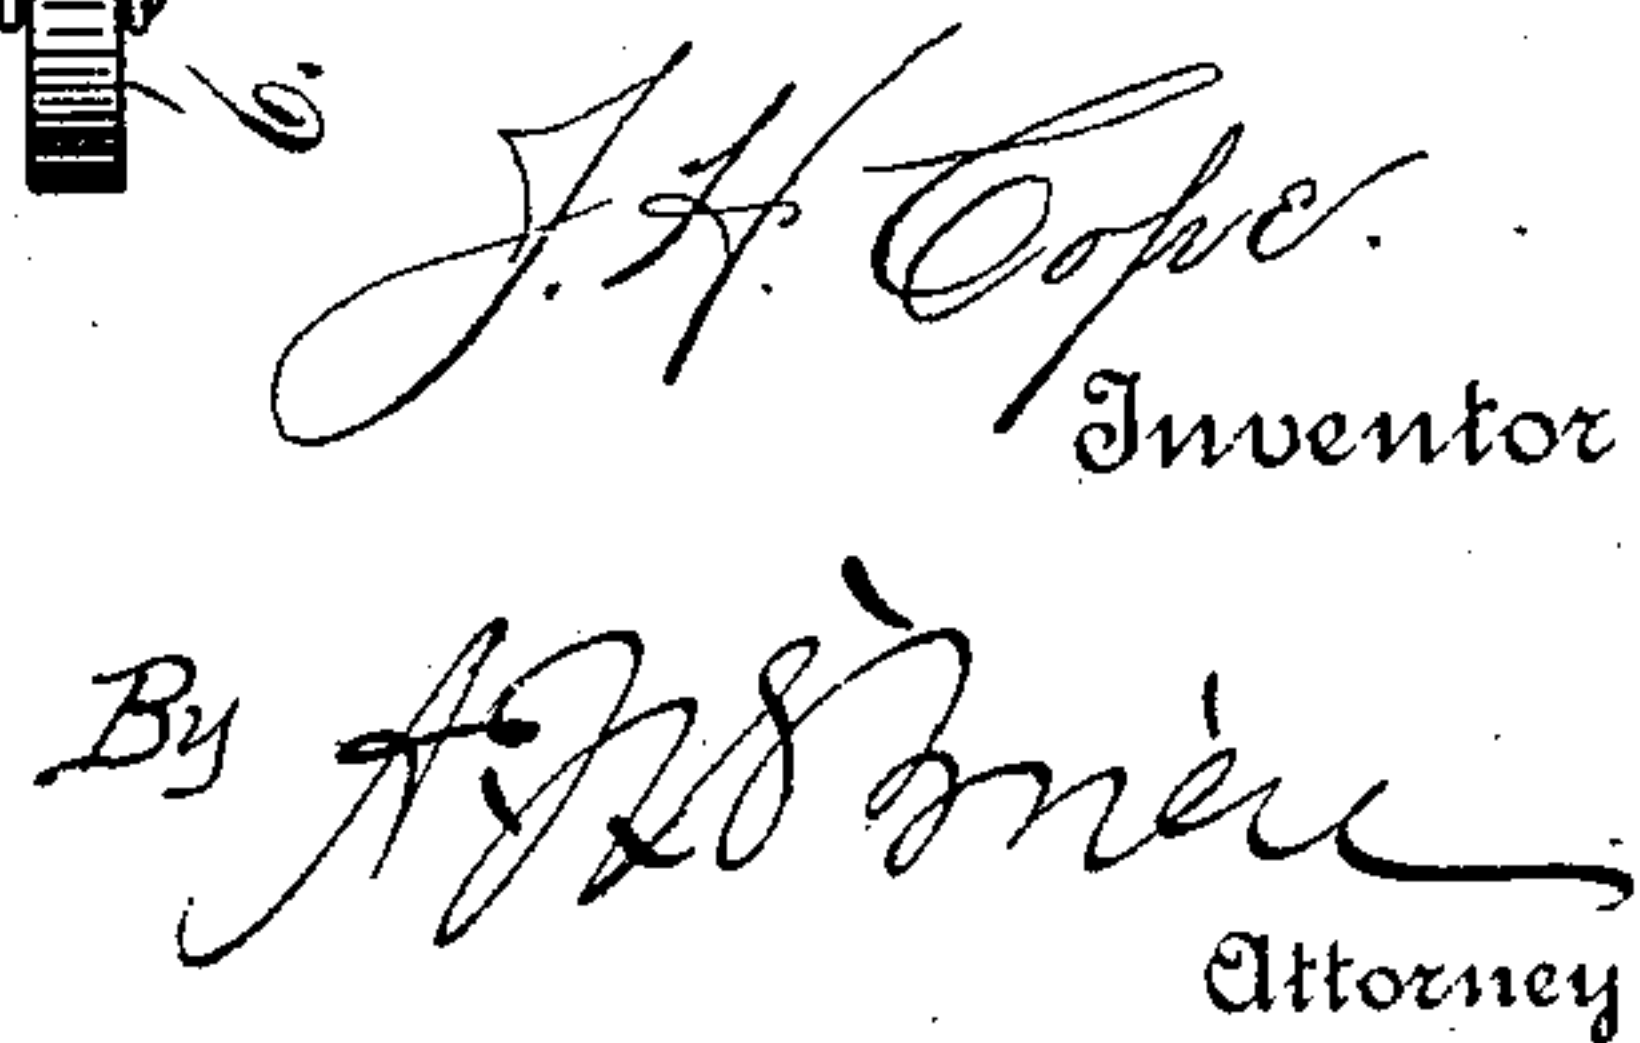 6.
J. H. Cope.
Inventor
By
Attorney